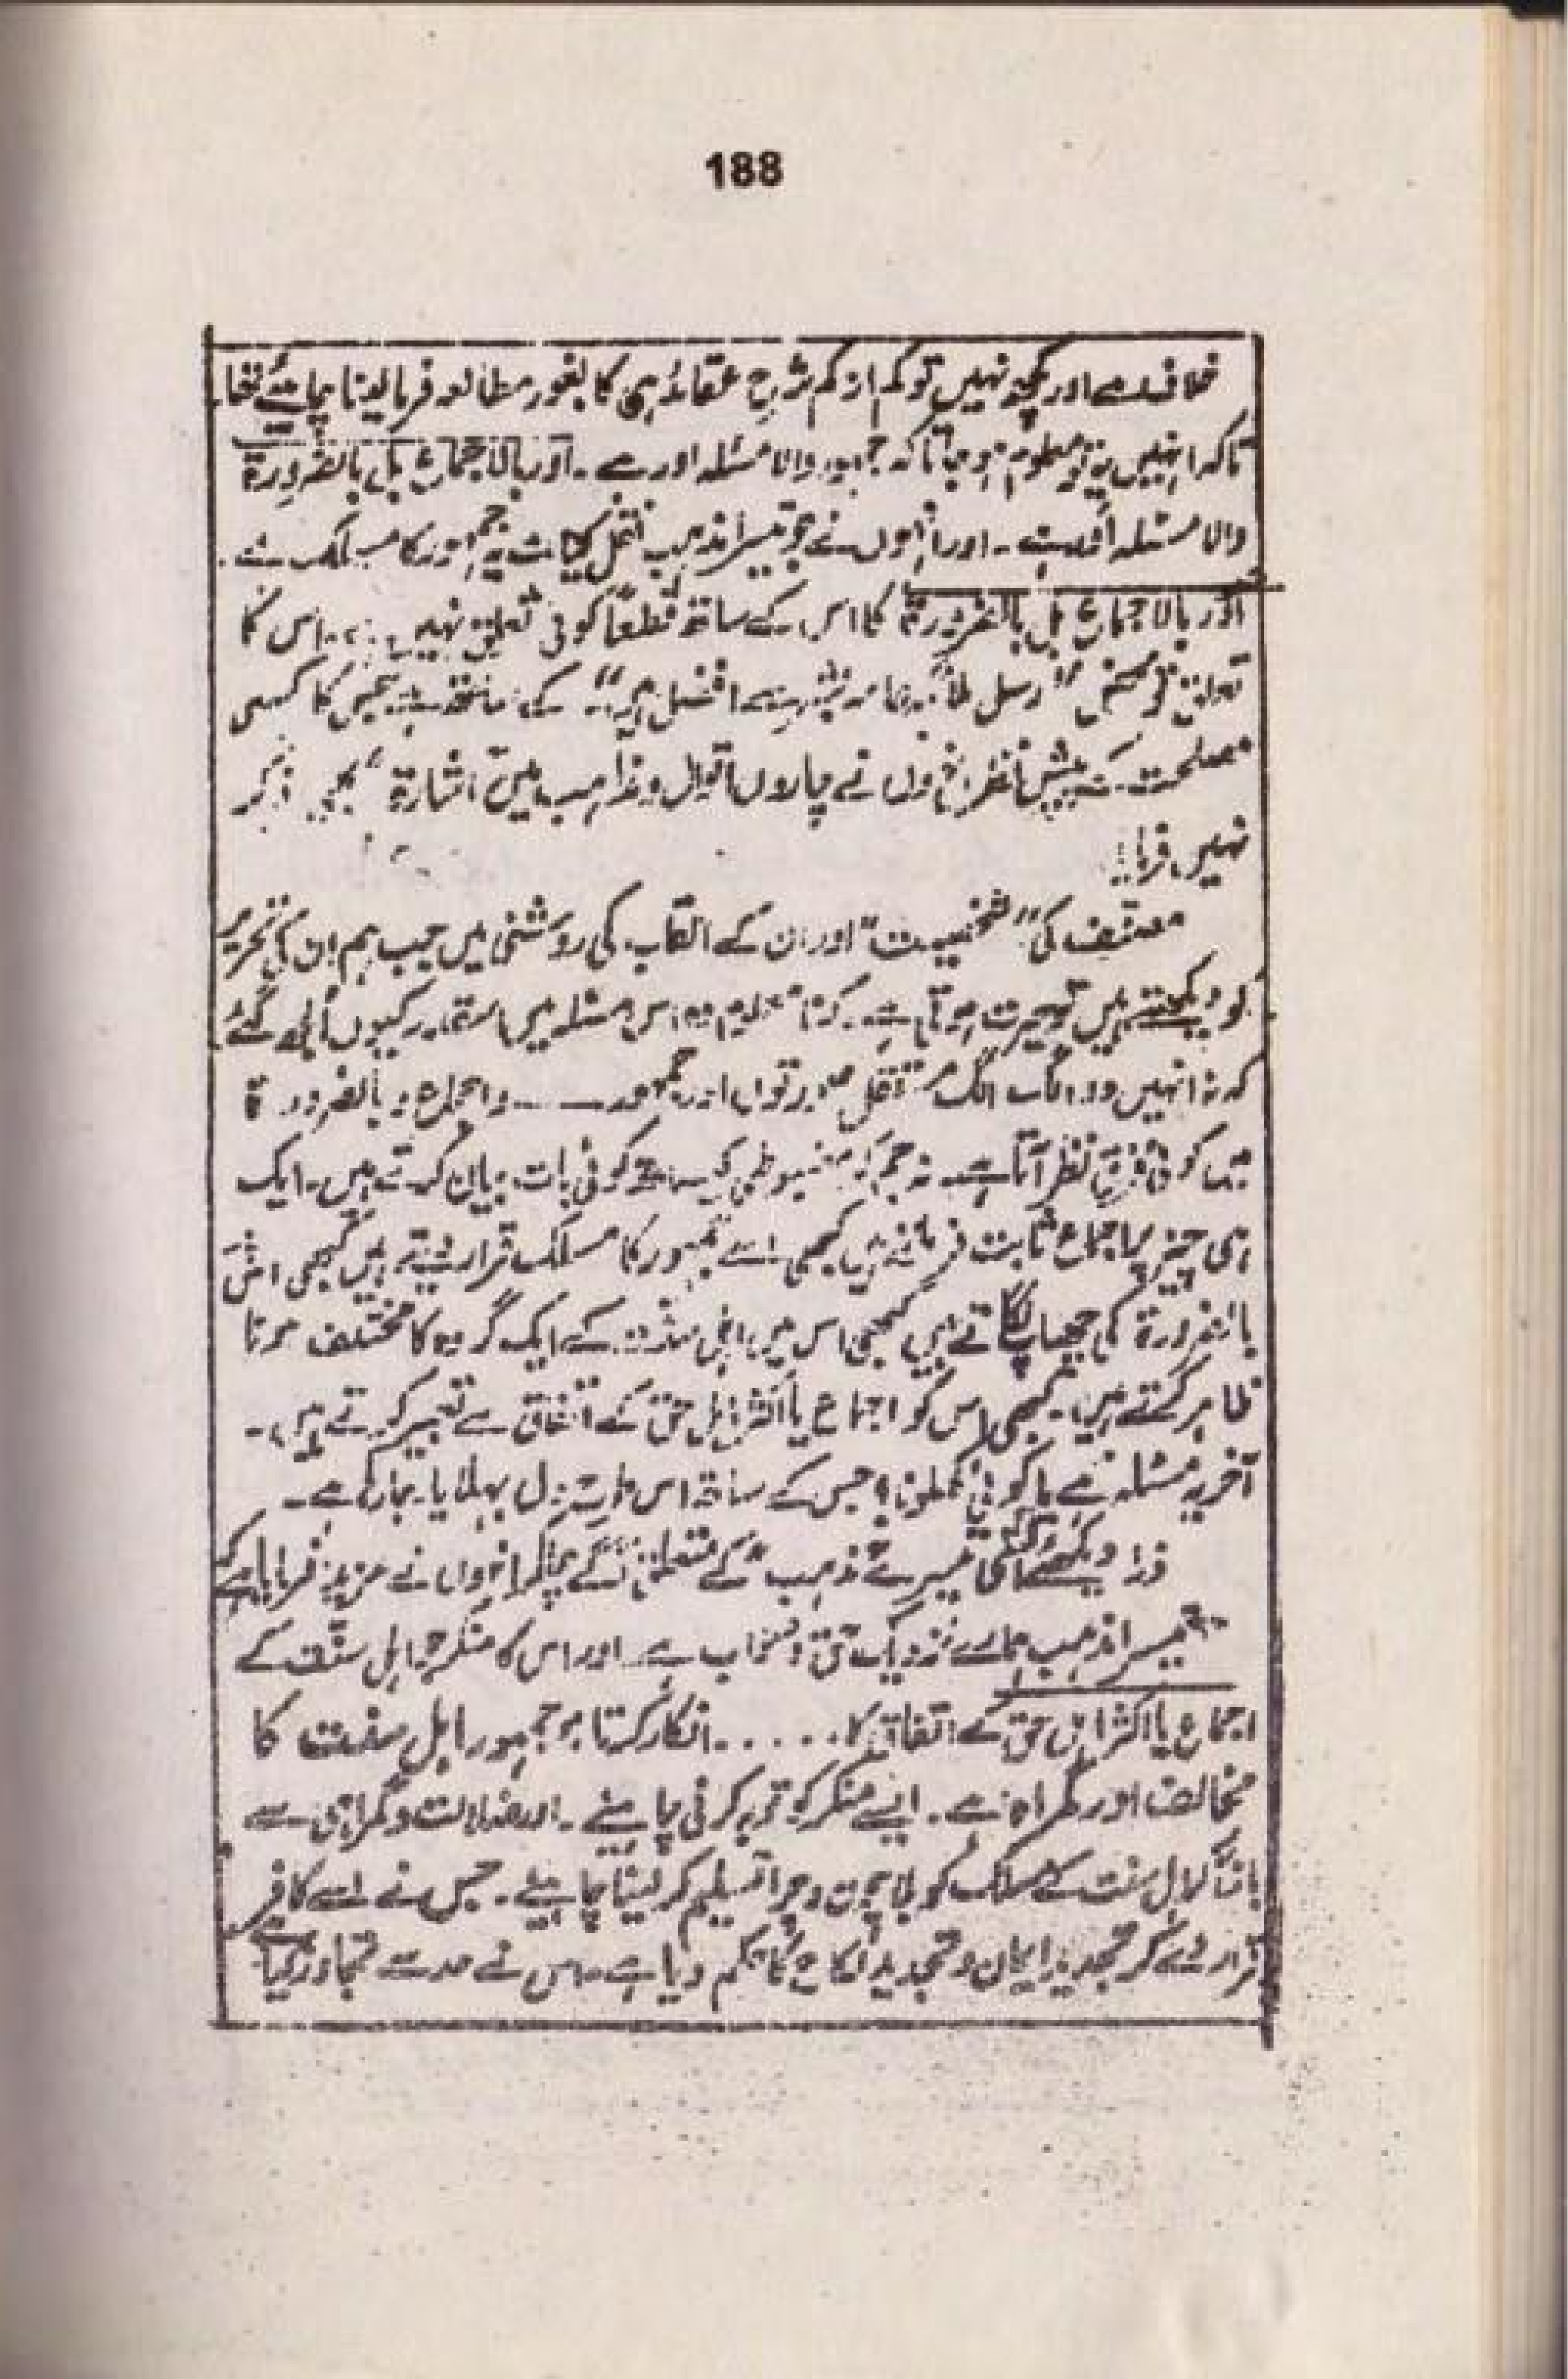 188
اور کچھ نہیں تو کم از کم شرح عقائد ہی کا بغور مطالعہ فرما لینا چاہئے تھا۔
تاکہ انہیں یہ تو معلوم ہو جاتا کہ جمہور والا مسئلہ اور ہے۔ اور بالاجماع بل بالضرورۃ
والا مسئلہ اور ہے۔ اور انہوں نے جو تیسرا مذہب نقل کیا ہے یہ جمہور کا مسلک ہے۔
اور بالاجماع بل بالضرورۃ کا اس کے ساتھ قطعاً کوئی تعلق نہیں۔ اس کا
تعلق تو محض "رسل ملائکہ عامہ بشر سے افضل ہیں" کے ساتھ ہے جس کا کسی
مصلحت کے پیش نظر انہوں نے چاروں اقوال و مذاہب میں اشارۃً بھی ذکر
نہیں فرمایا۔
مصنف کی "شخصیت" اور ان کے القاب کی روشنی میں جب ہم ان کی تحریر
کو دیکھتے ہیں تو حیرت ہوتی ہے۔ کہ نا معلوم وہ اس مسئلہ میں اسقدر کیوں الجھ گئے
کہ نہ انہیں دو الگ الگ مستقل صورتوں اور جمہور ـــ و اجماع و بالضرورۃ
میں کوئی فرق نظر آتا ہے۔ نہ جم کر مضبوطی کے ساتھ کوئی بات بیان کرتے ہیں۔ ایک
ہی چیز پر اجماع ثابت فرماتے ہیں کبھی اسے جمہور کا مسلک قرار دیتے ہیں کبھی اس پر
بالضرورۃ کی چھاپ لگاتے ہیں کبھی اس میں اہل سنت کے ایک گروہ کا مختلف ہونا
ظاہر کرتے ہیں۔ کبھی اس کو اجماع یا اکثر اہل حق کے اتفاق سے تعبیر کرتے ہیں۔
آخر یہ مسئلہ ہے یا کوئی کھلونا؟ جس کے ساتھ اس طرح دل بہلایا جا رہا ہے۔
ذرا دیکھئے اسی تیسرے مذہب کے متعلق آگے چلکر انہوں نے مزید فرمایا ہے کہ
"تیسرا مذہب ہمارے نزدیک حق و صواب ہے اور اس کا منکر جو اہل سنت کے
اجماع یا اکثر اہل حق کے اتفاق کا ...... انکار کرتا ہو جمہور اہل سنت کا
مخالف اور گمراہ ہے۔ ایسے منکر کو توبہ کرنی چاہیئے۔ اور ضلالت و گمراہی سے
باز آ کر اہل سنت کے مسلک کو بلا چون و چرا تسلیم کر لینا چاہیئے۔ جس نے اسے کافر
قرار دے کر تجدید ایمان و تجدید نکاح کا حکم دیا ہے اس نے حد سے تجاوز کیا ہے